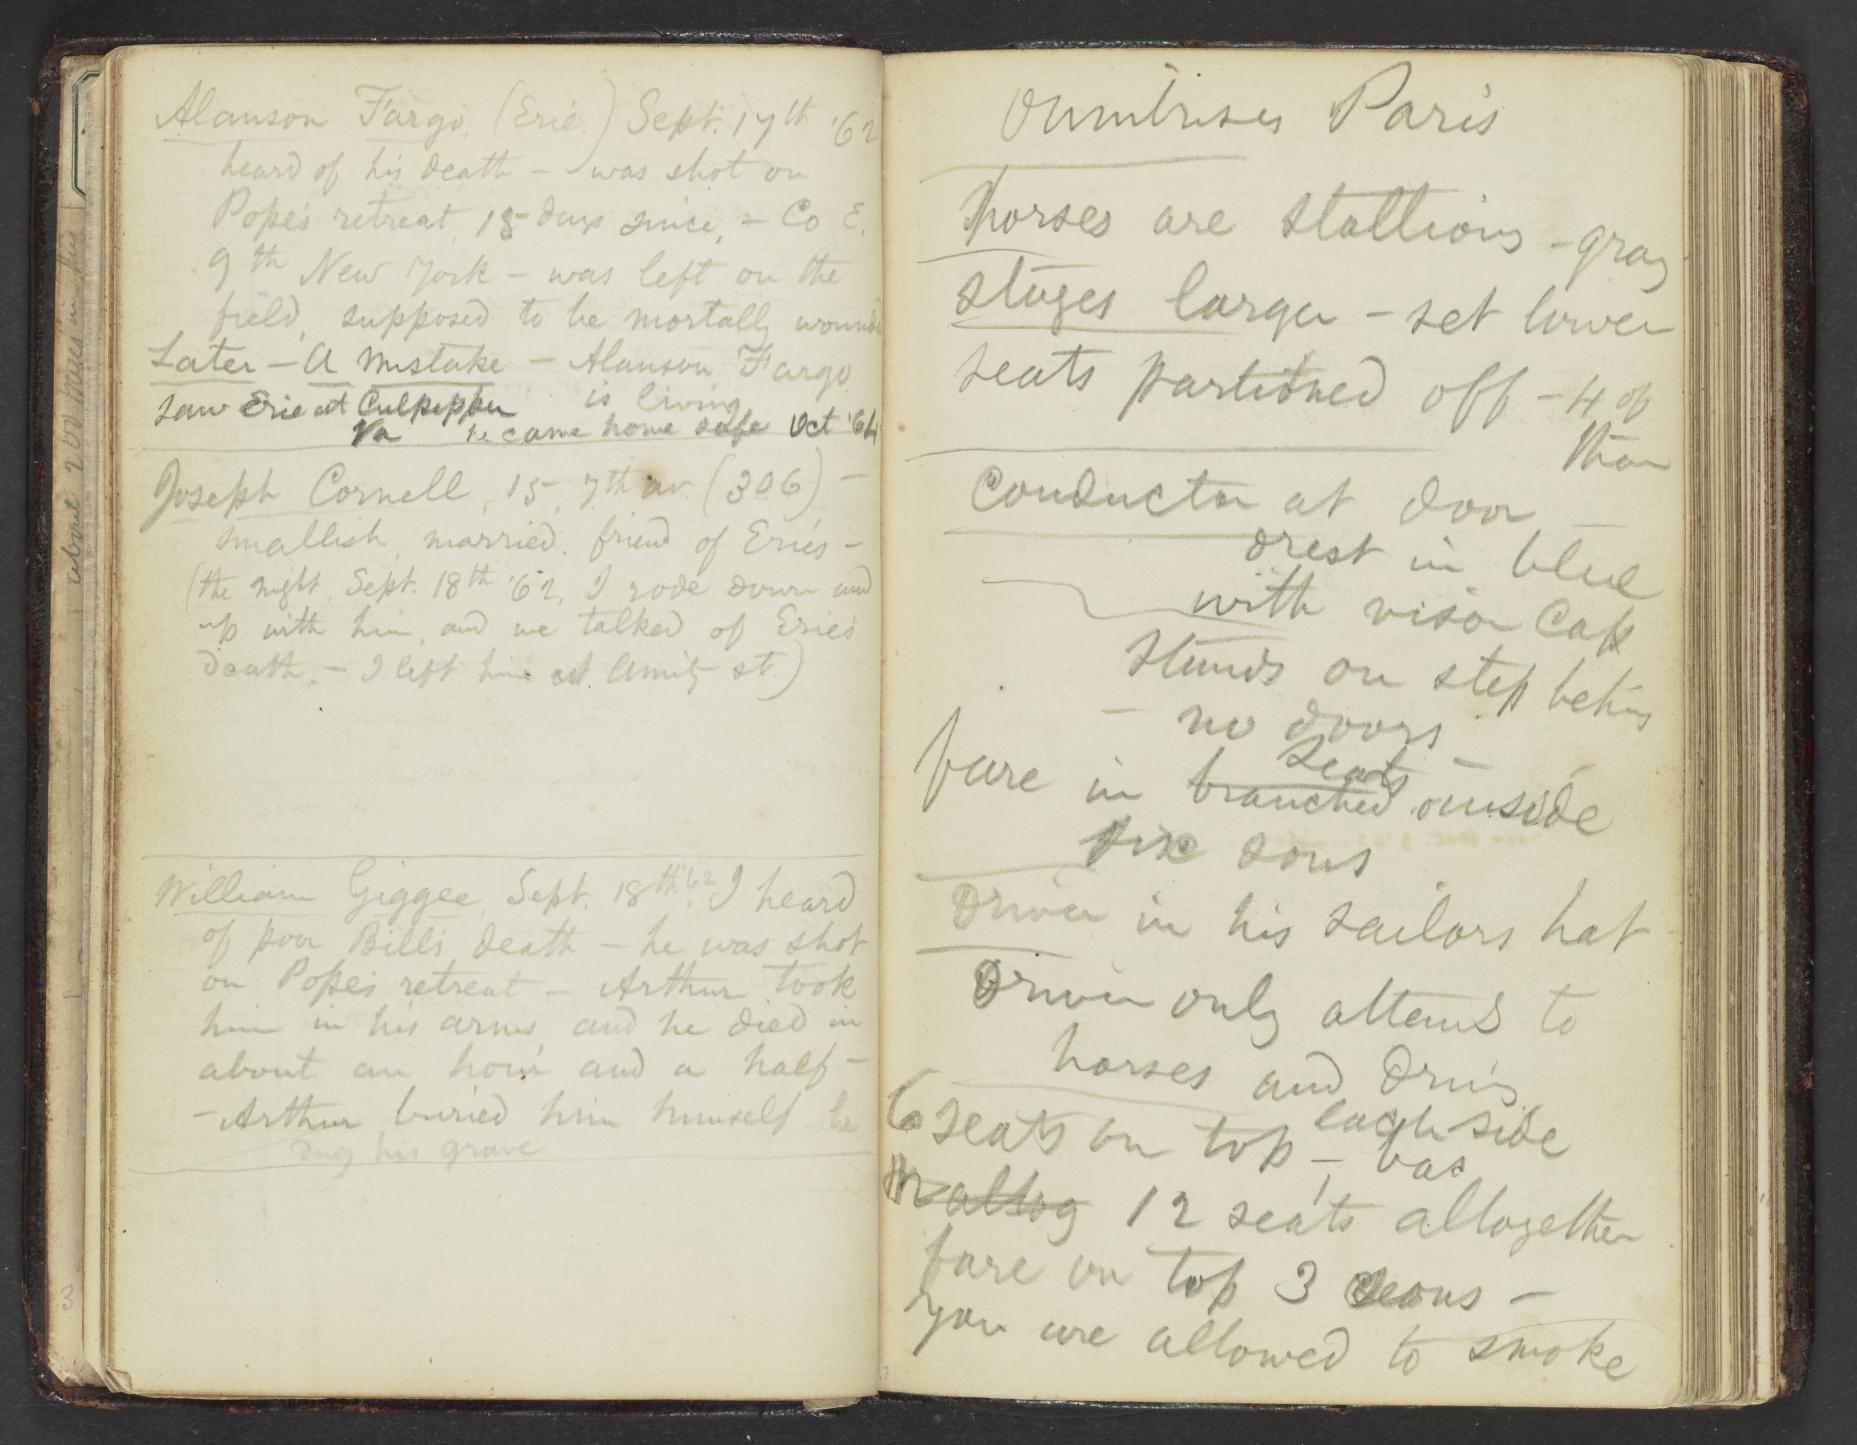 Alanson Fargo, (Erie.) Sept. 17th '62
heard of his death – was shot on
Pope's retreat, 15 days since, – Co E.
9th New York – was left on the
field, supposed to be mortally wounded
Later – A mistake – Alanson Fargo
is living
saw Erie at Culpepper
Va he came home safe Oct '64
Joseph Cornell, 15, 7th av. (306) –
smallish, married, friend of Erie's –
(the night, Sept. 18th '62, I rode down and
up with him, and we talked of Erie's
death, – I left him at Amity st.)
William Giggee, Sept. 18th '62. I heard
of poor Bill's death – he was shot
on Pope's retreat – Arthur took
him in his arms, and he died in
about an hour and a half –
– Arthur buried him himself he
dug his grave
about 200
3
Omnibuses Paris
horses are stallions – gray
stages larger – set lower
seats partitioned off – 4 of
than
Conductor at door –
drest in blue
with visor Cap
stands on step behind
– no doors
seats –
fare in branched ouside
six sous
Driver in his sailors hat
Driver only attends to
horses and driving
6 seats on top – each side
bac
12 seats altogether
fare on top 3 sous –
you are allowed to smoke